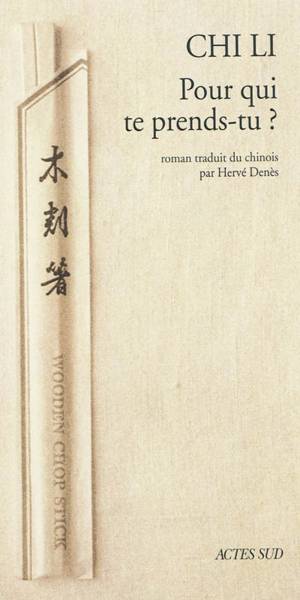 CHI LI
Pour qui
te prends-tu ?
roman traduit du chinois
par Hervé Denès
木刻箸
WOODEN CHOP STICK
ACTES SUD